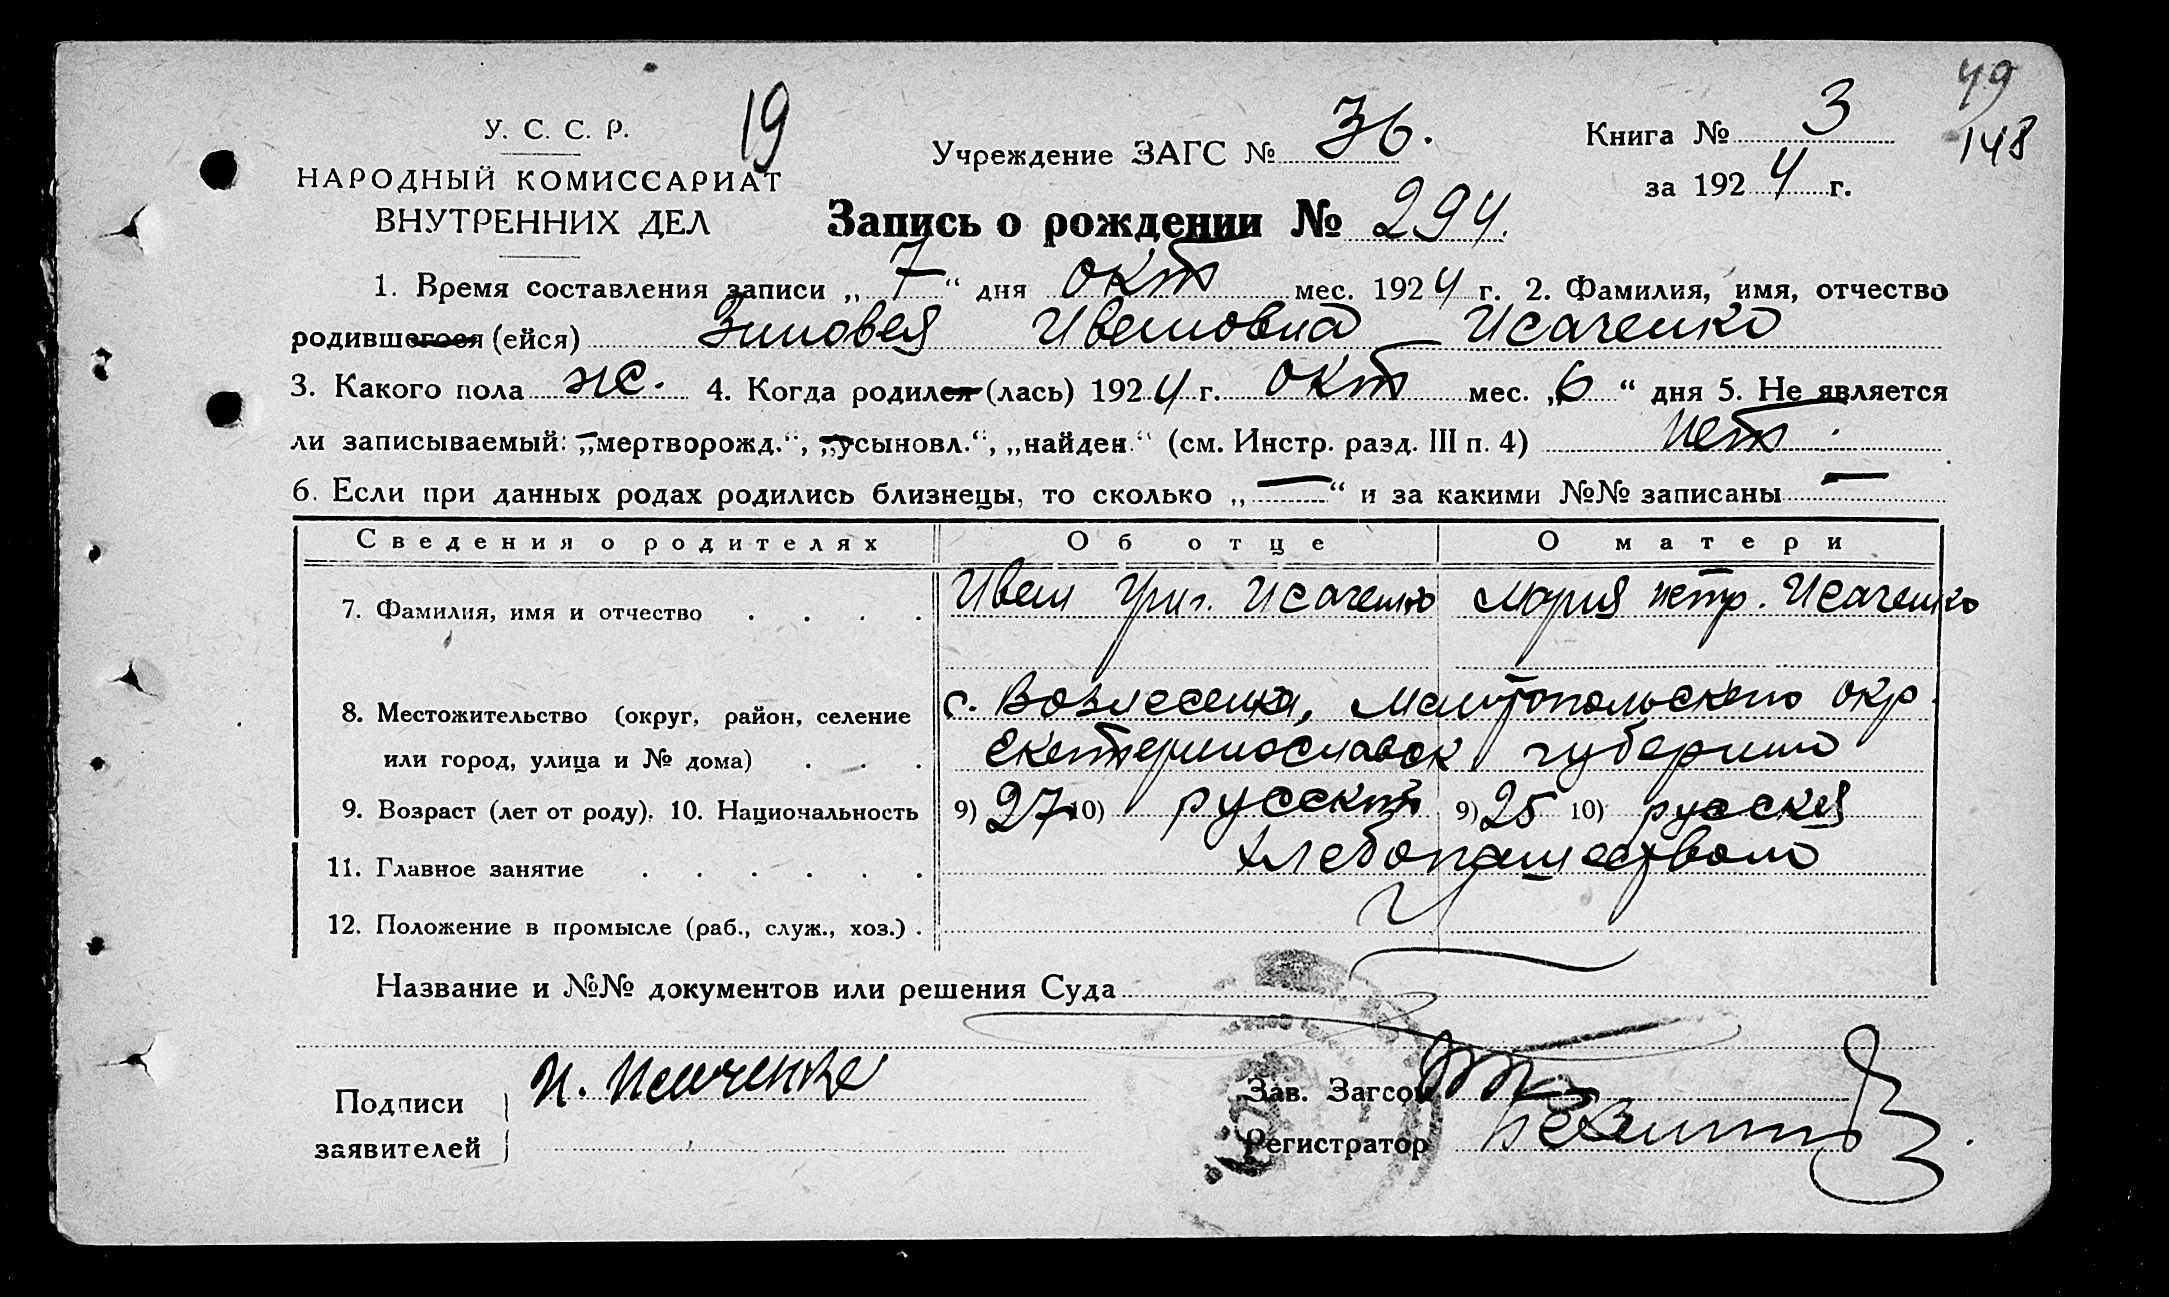 49
148
19
У. С. С. Р.
НАРОДНЫЙ КОМИССАРИАТ
ВНУТРЕННИХ ДЕЛ
Учреждение ЗАГС № 36.
Книга № 3
за 1924 г.
Запись о рождении № 294.
1. Время составления записи „7“ дня окт мес. 1924 г. 2. Фамилия, имя, отчество
родившегося (ейся) Зиновея Ивановна Исаченко
3. Какого пола ж. 4. Когда родился (лась) 1924 г. окт мес. „6“ дня 5. Не является
ли записываемый: „мертворожд.“, „усыновл.“, „найден.“ (см. Инстр. разд. III п. 4) нет.
6. Если при данных родах родились близнецы, то сколько „—“ и за какими №№ записаны —
Сведения о родителях Об отце О матери
7. Фамилия, имя и отчество . . . . Иван Григ. Исаченко Мария петр. Исаченко
8. Местожительство (округ, район, селение с. Вознесенка, Мелитопольского окр.
или город, улица и № дома) . . . Екатеринославск губернии
9. Возраст (лет от роду). 10. Национальность 9) 27 10) русский 9) 25 10) русская
11. Главное занятие . . . . . . Хлебопашеством
12. Положение в промысле (раб., служ., хоз.) .
Название и №№ документов или решения Суда
Подписи И. Исаченко Зав. Загсом
заявителей Регистратор